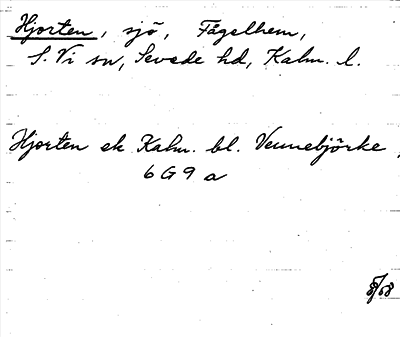 Hjorten, sjö, Fågelhem,
S. Vi sn, Sevede hd, Kalm. l.
Hjorten ek Kalm. bl. Vennebjörke,
6 G 9 a
8/68